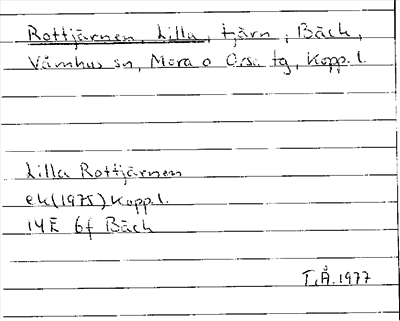 Rottjärnen, Lilla, tjärn, Bäck,
Våmhus sn, Mora o Orsa tg, Kopp. l.
Lilla Rottjärnen
ek (1975) Kopp. l.
14E 6f Bäck
T.Å. 1977